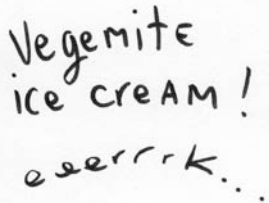 Vegemite
ice creAM!
eeerrrk...